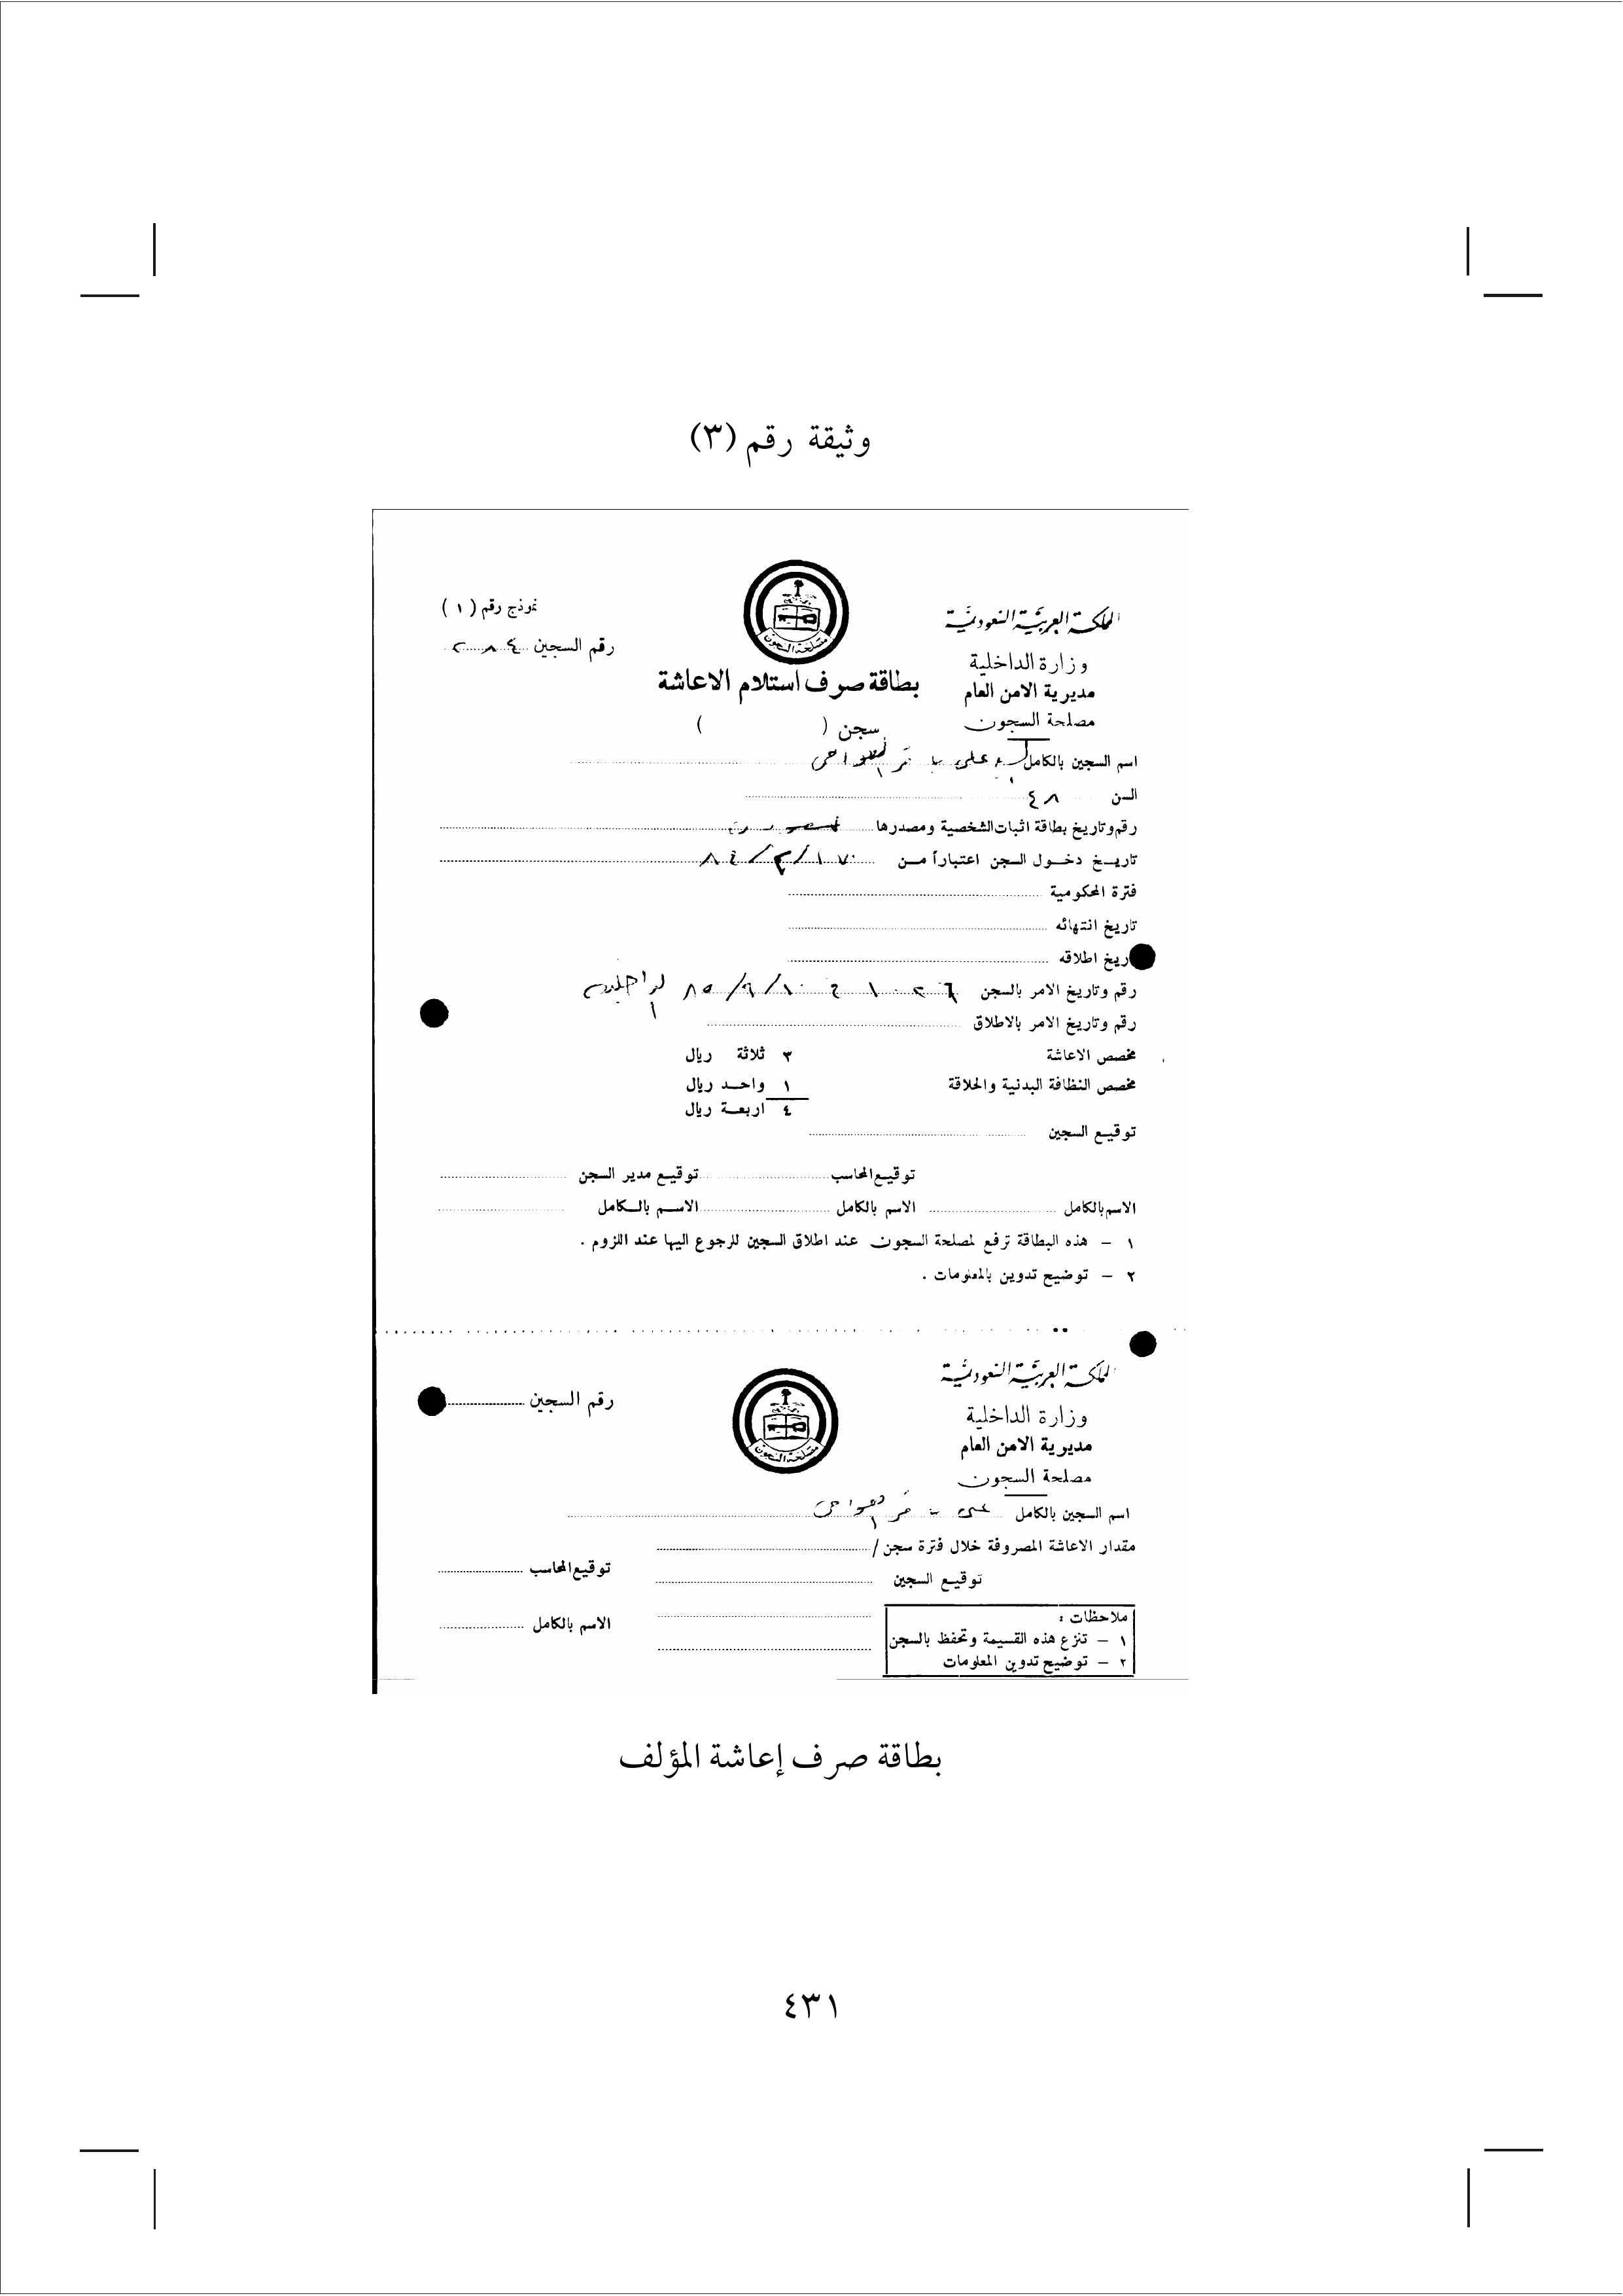 وثيقة رقم (٣)
المملكة العربية السعودية
نموذج رقم ( ١ )
وزارة الداخلية
رقم السجين
مديرية الامن العام
بطاقة صرف استلام الاعاشة
مصلحة السجون
سجن (            )
مصلحة السجون
اسم السجين بالكامل علي
السن ٤٨
رقم وتاريخ بطاقة اثبات الشخصية ومصدرها
تاريخ دخول السجن اعتباراً من
فترة المحكومية
تاريخ انتهائه
تاريخ اطلاقه
رقم وتاريخ الامر بالسجن
رقم وتاريخ الامر بالاطلاق
مخصص الاعاشة ٣ ثلاثة ريال
مخصص النظافة البدنية والحلاقة ١ واحد ريال
٤ اربعة ريال
توقيع السجين
توقيع المحاسب توقيع مدير السجن
الاسم بالكامل الاسم بالكامل الاسم بالكامل
١ - هذه البطاقة ترفع لمصلحة السجون عند اطلاق السجين للرجوع اليها عند اللزوم .
٢ - توضيح تدوين بالمعلومات .
المملكة العربية السعودية
رقم السجين
وزارة الداخلية
مديرية الامن العام
مصلحة السجون
مصلحة السجون
اسم السجين بالكامل
مقدار الاعاشة المصروفة خلال فترة سجن /
توقيع المحاسب
توقيع السجين
ملاحظات :
الاسم بالكامل
١ - تنزع هذه القسيمة وتحفظ بالسجن
٢ - توضيح تدوين المعلومات
بطاقة صرف إعاشة المؤلف
٤٣١